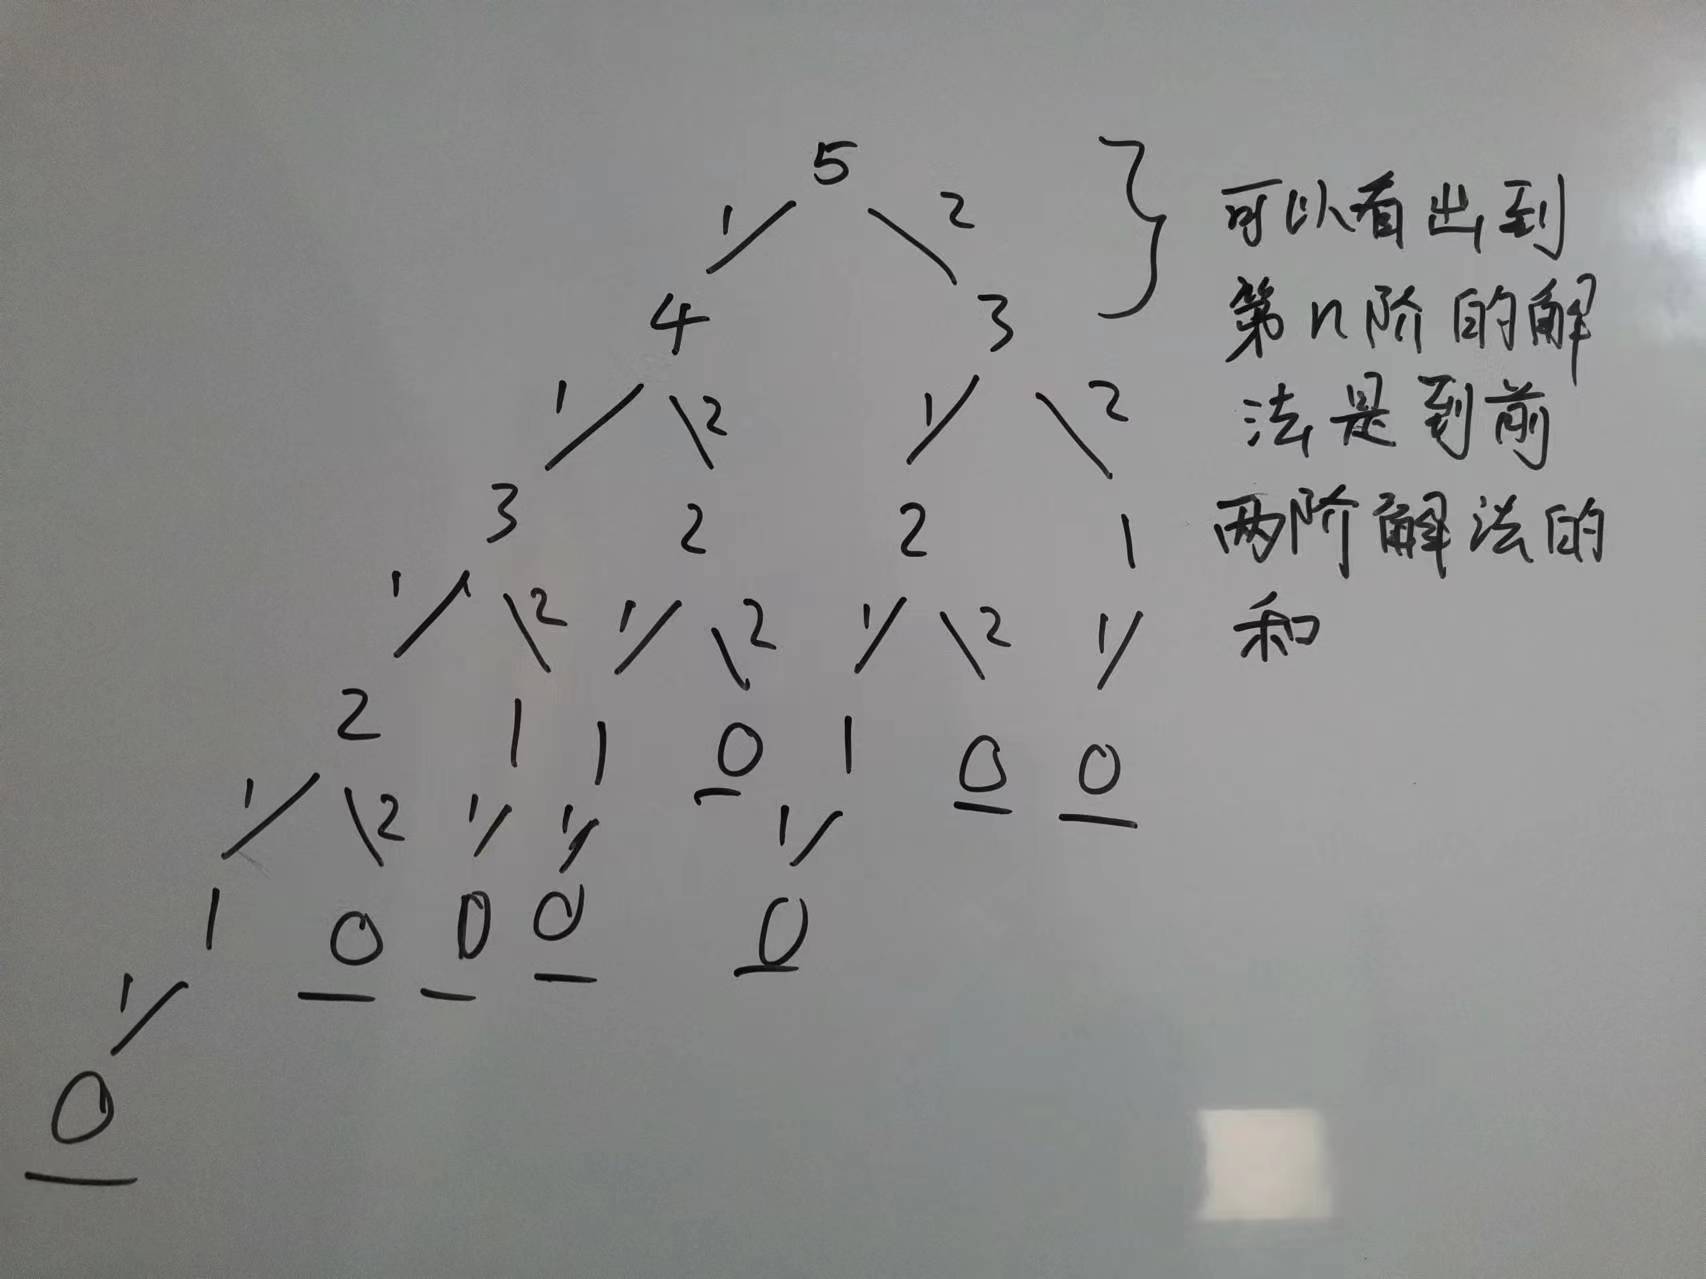 5
1 2
4 3
1 2 1 2
3 2 2 1
1 2 1 2 1 2 1
2 1 1 0 1 0 0
1 2 1 1 1
1 0 0 0 0
1
0
可以看出到
第n阶的解
法是到前
两阶解法的
和